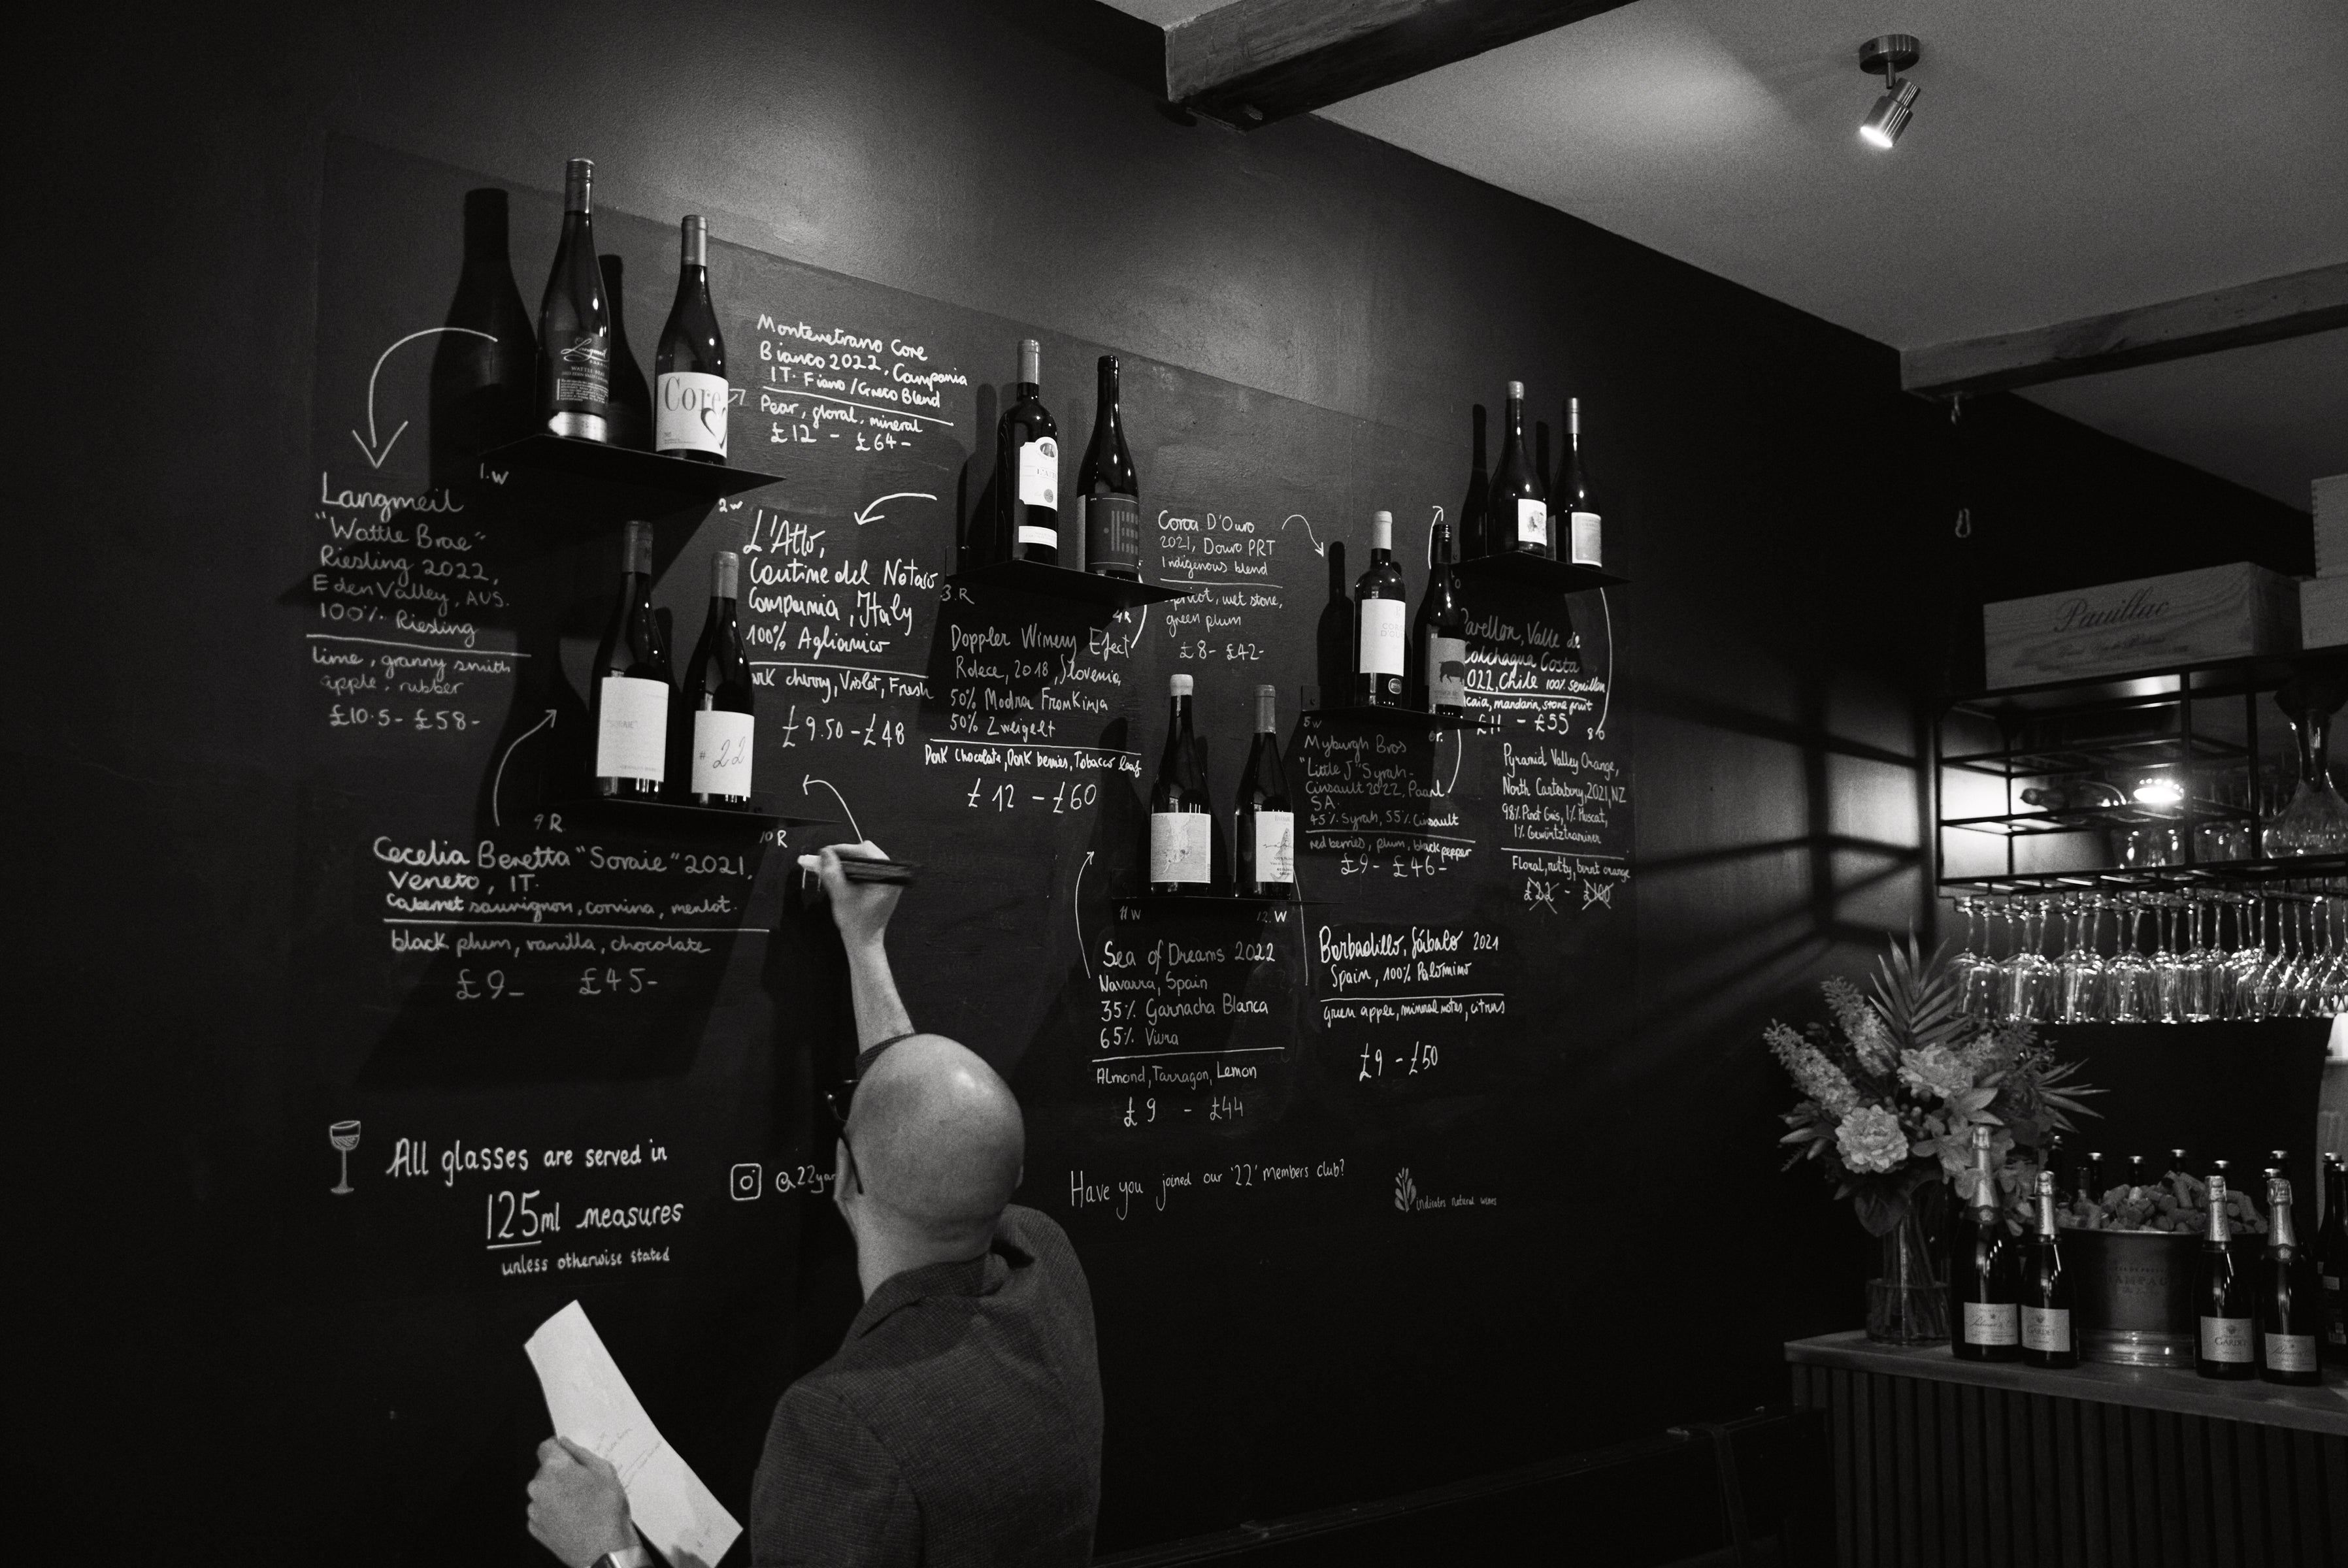 Montevetrano Core
Bianco 2022, Campania
IT. Fiano / Greco Blend
Pear, floral, mineral
£12 - £64-
Core
WATTLE BRAE
1.W
2 W
Langmeil
"Wattle Brae"
Riesling 2022,
Eden Valley, AUS.
100% Riesling
lime, granny smith
apple, rubber
£10.5- £58-
L'Atto,
Cantine del Notaio
Campania, Italy
100% Aglianico
Dark cherry, Violet, Fresh
£9.50 - £48
3.R
4R
Doppler Winery Efect
Rdece, 2018, Slovenia,
50% Modra Frankinja
50% Zweigelt
Dark Chocolate, Dark berries, Tobacco leaf
£12 - £60
Coroa D'Ouro
2021, Douro PRT
Indigenous blend
apricot, wet stone,
green plum
£8- £42-
5W
6r.
Myburgh Bros
"Little J" Syrah-
Cinsault 2022, Paarl
SA.
45% Syrah, 55% Cinsault
red berries, plum, black pepper
£9- £46-
Valle de
Colchagua Costa
2022, Chile 100% semillon
mandarin, stone fruit
£11 - £55
8 O
Pyramid Valley Orange,
North Canterbury, 2021, NZ
98% Pinot Gris, 1% Muscat,
1% Gewürztraminer
Floral, nutty, burnt orange
£22 - £100
# 22
9 R.
10 R
Cecelia Beretta "Soraie" 2021,
Veneto, IT.
Cabernet sauvignon, corvina, merlot.
black plum, vanilla, chocolate
£9- £45-
11 W
12. W
Sea of Dreams 2022
Navarra, Spain
35% Garnacha Blanca
65% Viura
Almond, Tarragon, Lemon
£9 - £44
Barbadillo, Sábalo 2021
Spain, 100% Palomino
green apple, mineral notes, citrus
£9 - £50
All glasses are served in
125ml measures
unless otherwise stated
@22yar
Have you joined our '22' members club?
indicates natural wines
Pauillac
GARDET
GARDET